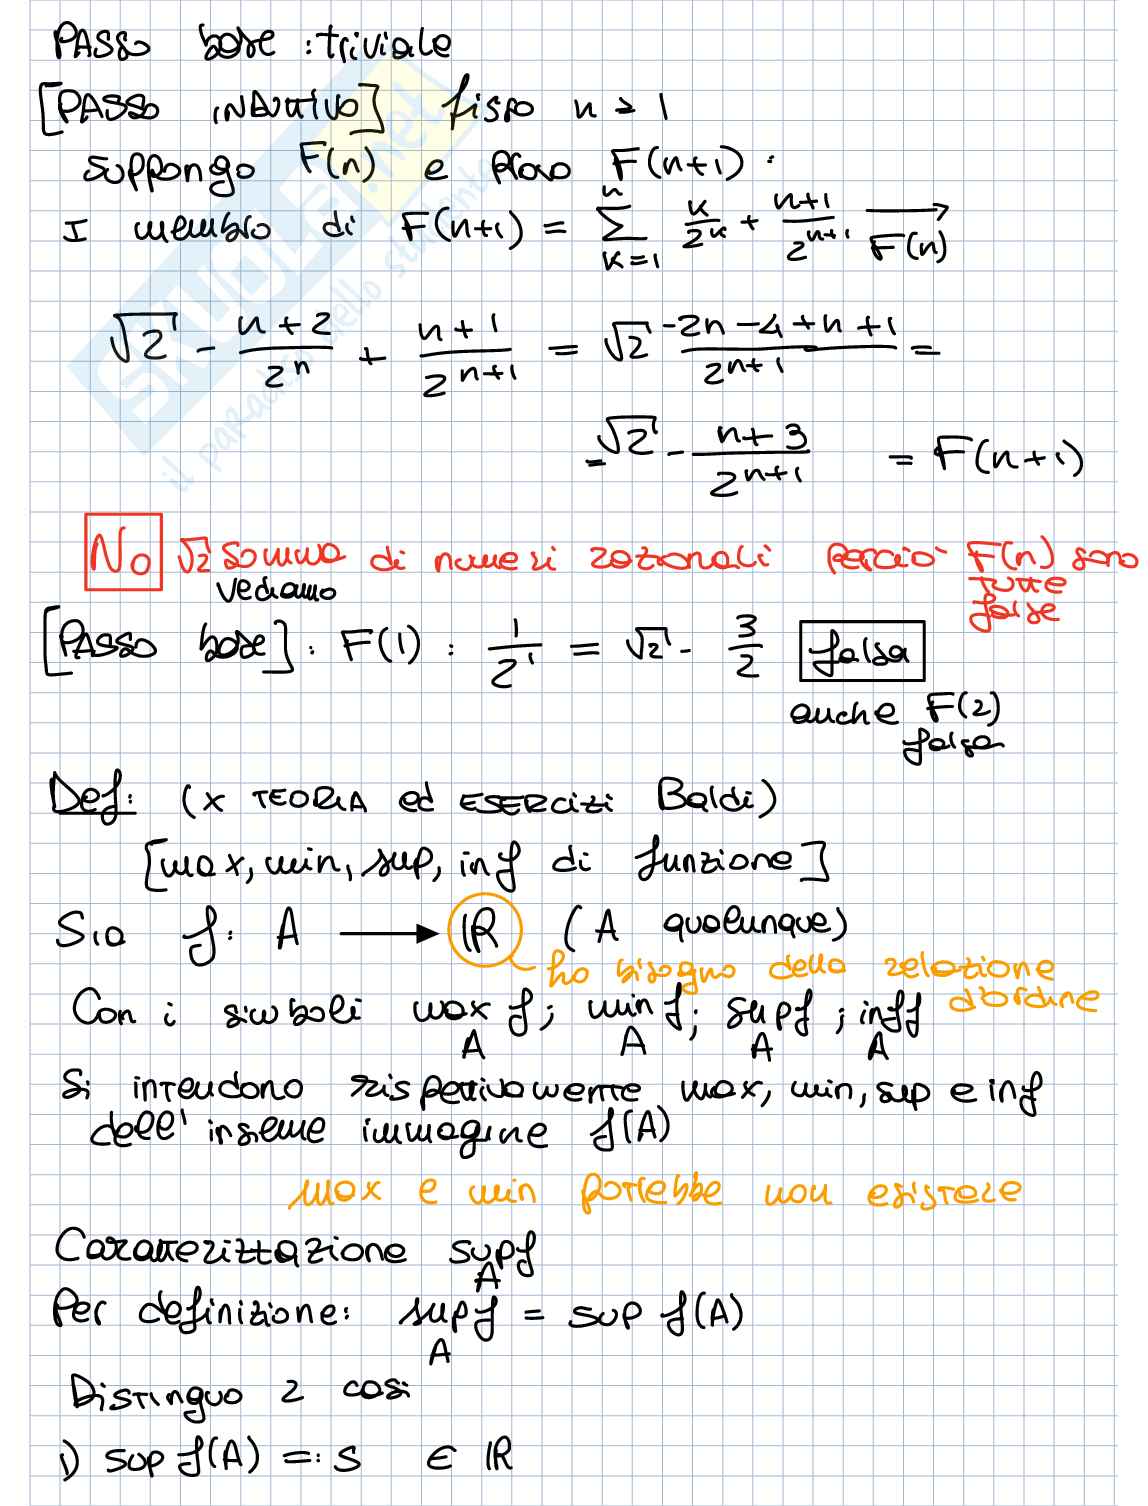 PASSO base : triviale
[PASSO INDUTTIVO] fisso n ≥ 1
suppongo F(n) e provo F(n+1) :
I membro di F(n+1) = \sum_{k=1}^{n} \frac{k}{2^k} + \frac{n+1}{2^{n+1}} \overrightarrow{F(n)}
√2 - \frac{n+2}{2^n} + \frac{n+1}{2^{n+1}} = √2 \frac{-2n-4+n+1}{2^{n+1}} =
= √2 - \frac{n+3}{2^{n+1}} = F(n+1)
No √2 somma di numeri razionali perciò F(n) sono tutte false
vediamo
[PASSO base] : F(1) : \frac{1}{2^1} = √2 - \frac{3}{2} falsa
anche F(2)
falsa
Def: (x TEORIA ed ESERCIZI Baldi)
[max, min, sup, inf di funzione]
Sia f: A → ℝ (A qualunque)
ho bisogno della relazione d'ordine
Con i simboli max_A f; min_A f; sup_A f; inf_A f
Si intendono rispettivamente max, min, sup e inf
dell' insieme immagine f(A)
max e min potrebbe non esistere
Caratterizzazione sup_A f
Per definizione: sup_A f = sup f(A)
Distinguo 2 casi
i) sup f(A) =: s ∈ ℝ
SKUOLA.net
il paradiso dello studente